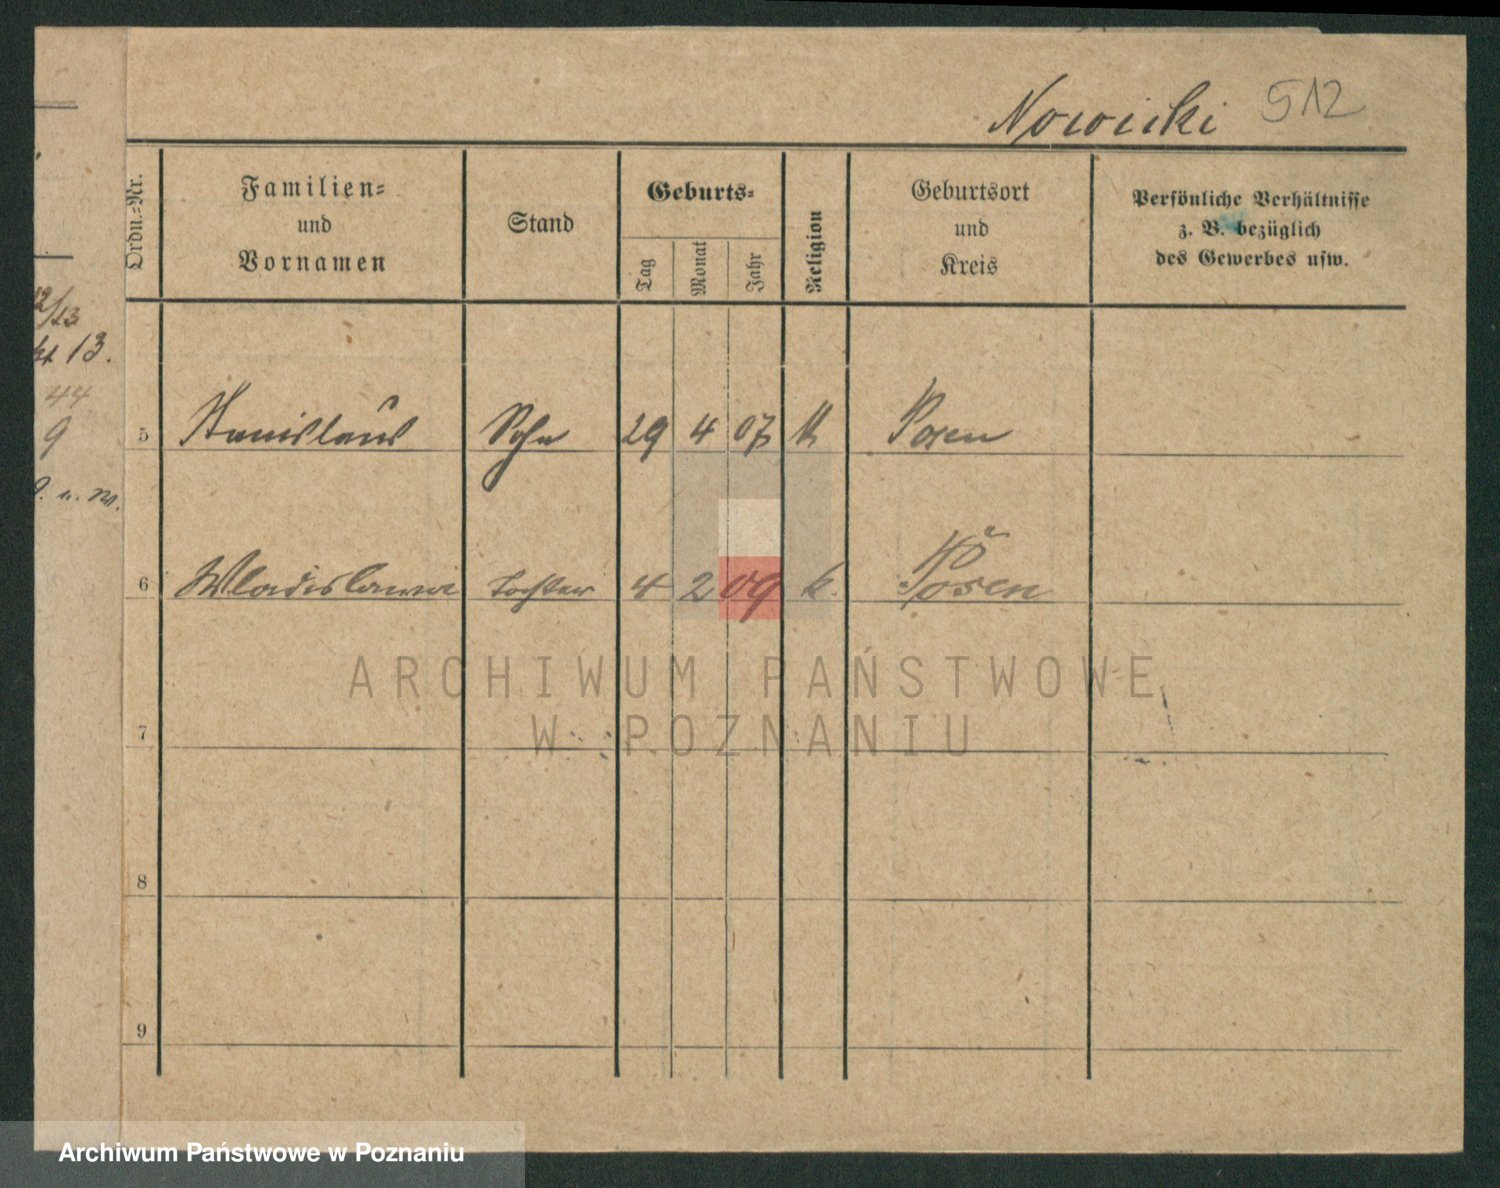 Nowicki 512
Ordn.-Nr.
Familien-
und
Vornamen
Stand
Geburts-
Tag
Monat
Jahr
Religion
Geburtsort
und
Kreis
Persönliche Verhältnisse
z. B. bezüglich
des Gewerbes usw.
12/13
13.
44
9
5 Stanislaus Sohn 29 4 07 k Posen
6 Wladislawa Tochter 4 2 09 k. Posen
ARCHIWUM PAŃSTWOWE
W POZNANIU
7
8
9
Archiwum Państwowe w Poznaniu